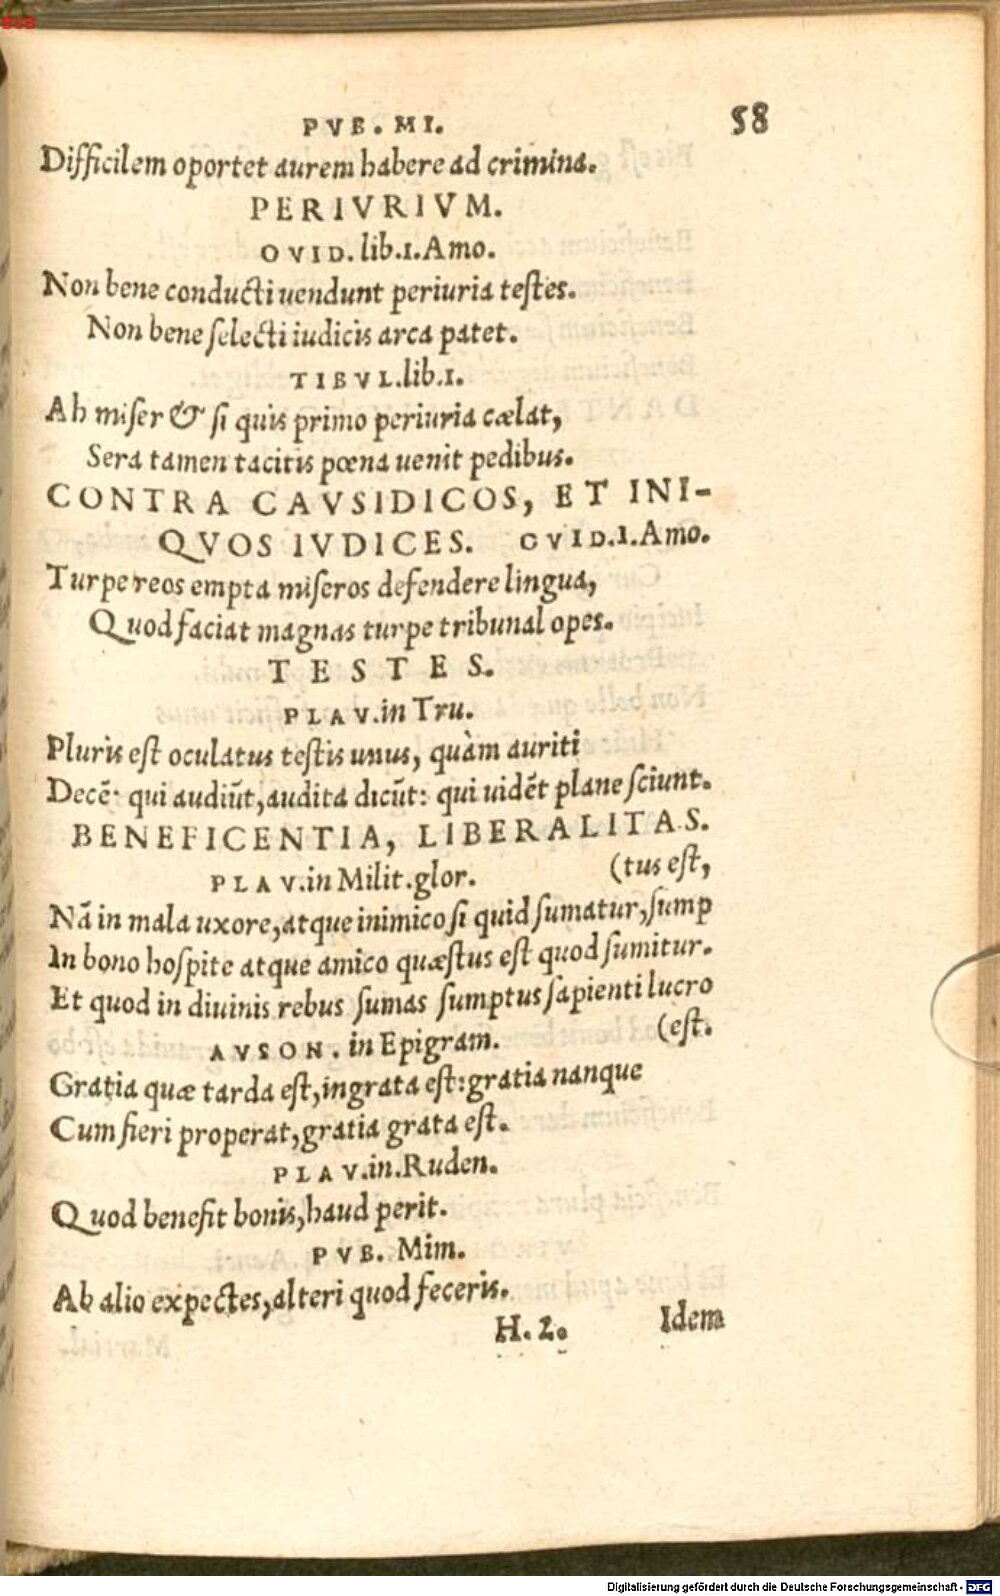 58
PVB. MI.
Difficilem oportet aurem habere ad crimina.
PERIVRIVM.
OVID. lib.1.Amo.
Non bene conducti uendunt periuria testes.
Non bene selecti iudicis arca patet.
TIBVL.lib.1.
Ah miser & si quis primo periuria cælat,
Sera tamen tacitis pœna uenit pedibus.
CONTRA CAVSIDICOS, ET INI-
QVOS IVDICES. OVID.1.Amo.
Turpe reos empta miseros defendere lingua,
Quod faciat magnas turpe tribunal opes.
TESTES.
PLAV.in Tru.
Pluris est oculatus testis unus, quàm auriti
Decē· qui audiūt, audita dicūt: qui uidēt plane sciunt.
BENEFICENTIA, LIBERALITAS.
PLAV.in Milit.glor. (tus est,
Nā in mala uxore, atque inimico si quid sumatur, sump
In bono hospite atque amico quæstus est quod sumitur.
Et quod in diuinis rebus sumas sumptus sapienti lucro
AVSON. in Epigram. (est.
Gratia quæ tarda est, ingrata est: gratia nanque
Cum fieri properat, gratia grata est.
PLAV.in.Ruden.
Quod benefit bonis, haud perit.
PVB. Mim.
Ab alio expectes, alteri quod feceris.
H. 2. Idem
Digitalisierung gefördert durch die Deutsche Forschungsgemeinschaft - DFG